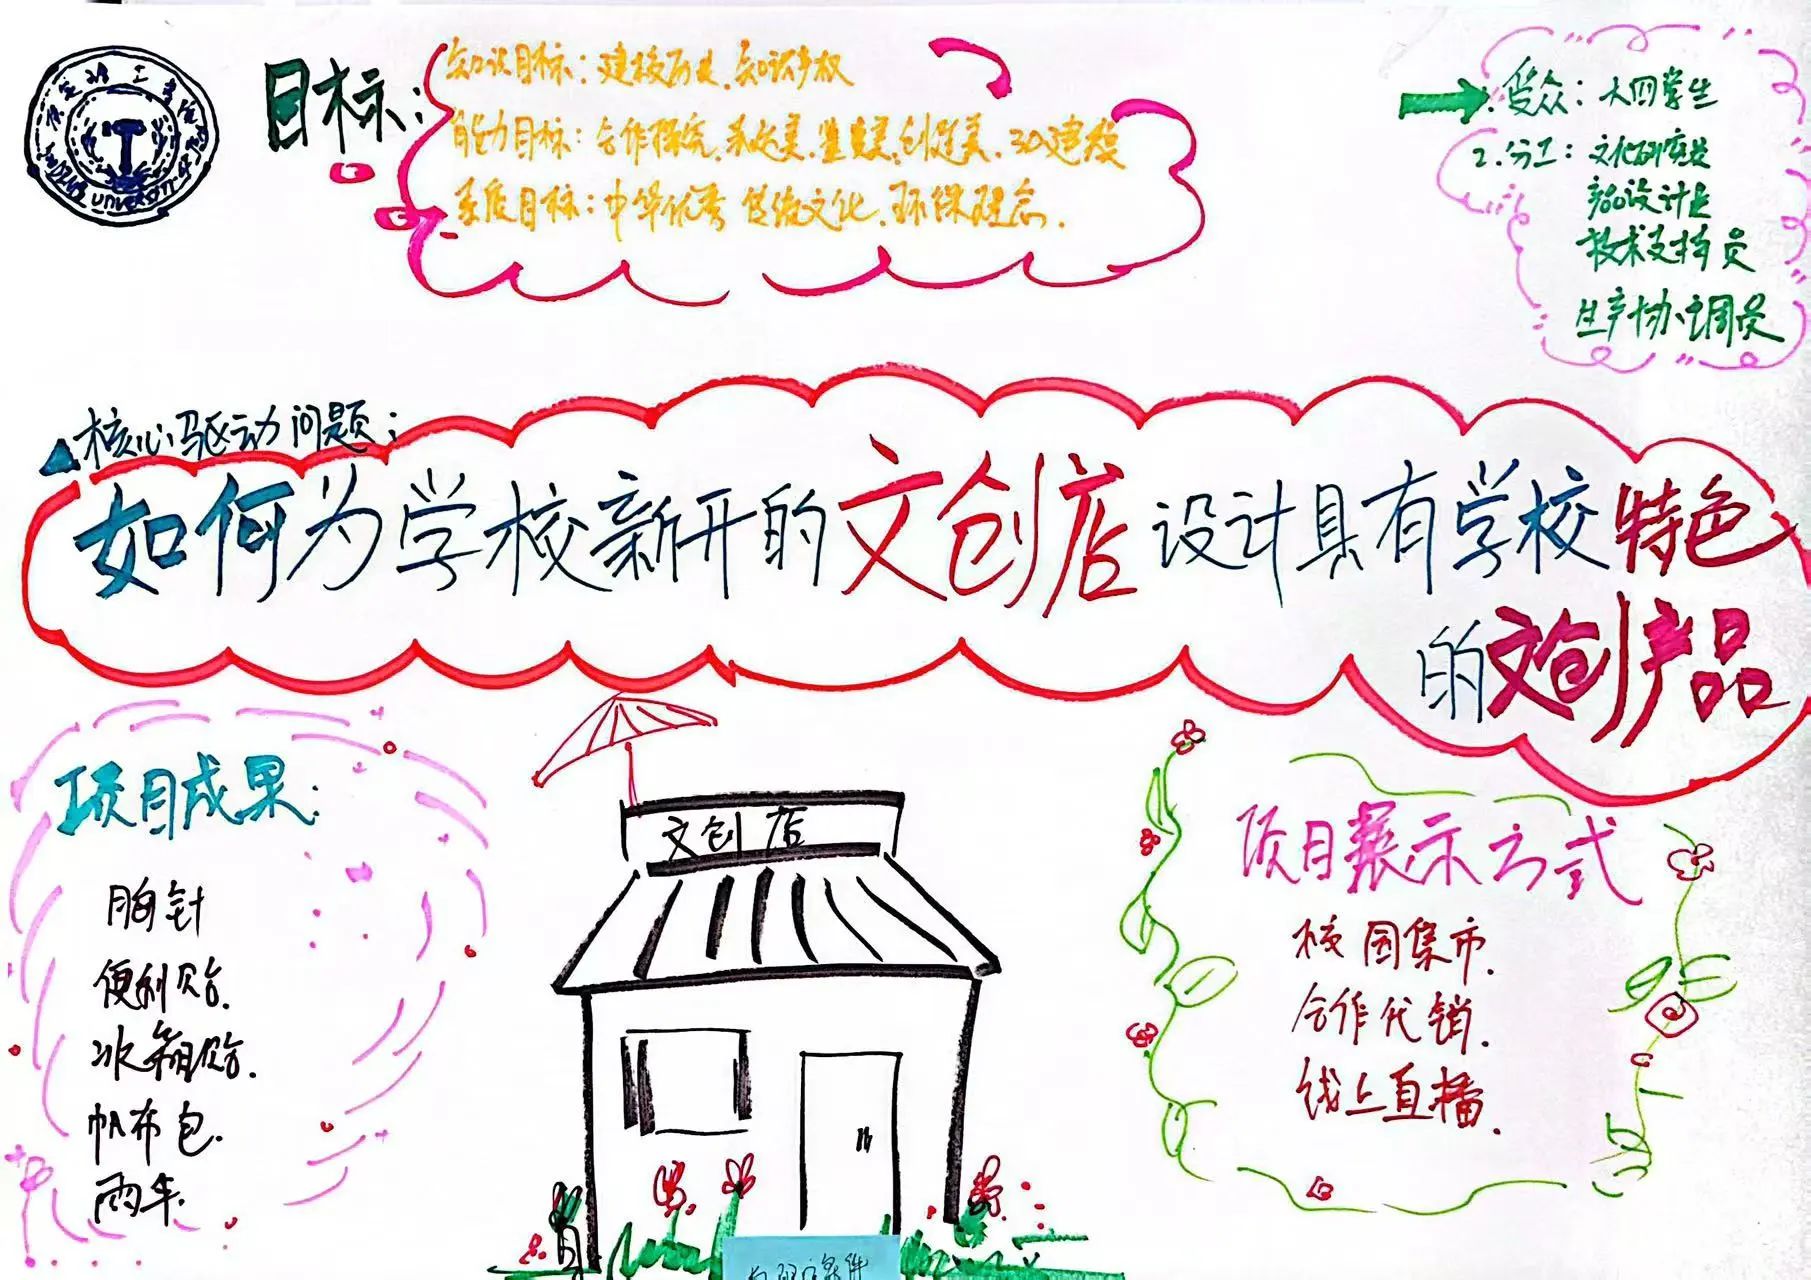 目标：
知识目标：建校历史、知识产权
能力目标：合作探究、表达美、鉴赏美、创造美、3D建模
态度目标：中华优秀传统文化、环保理念.
1.受众：大四学生
2.分工：文化研究员
产品设计员
技术支持员
生产协调员
核心驱动问题：
如何为学校新开的文创店设计具有学校特色
的文创产品
项目成果：
胸针
便利贴.
冰箱贴.
帆布包.
雨伞.
文创店
项目展示方式
校园集市.
合作代销.
线上直播.